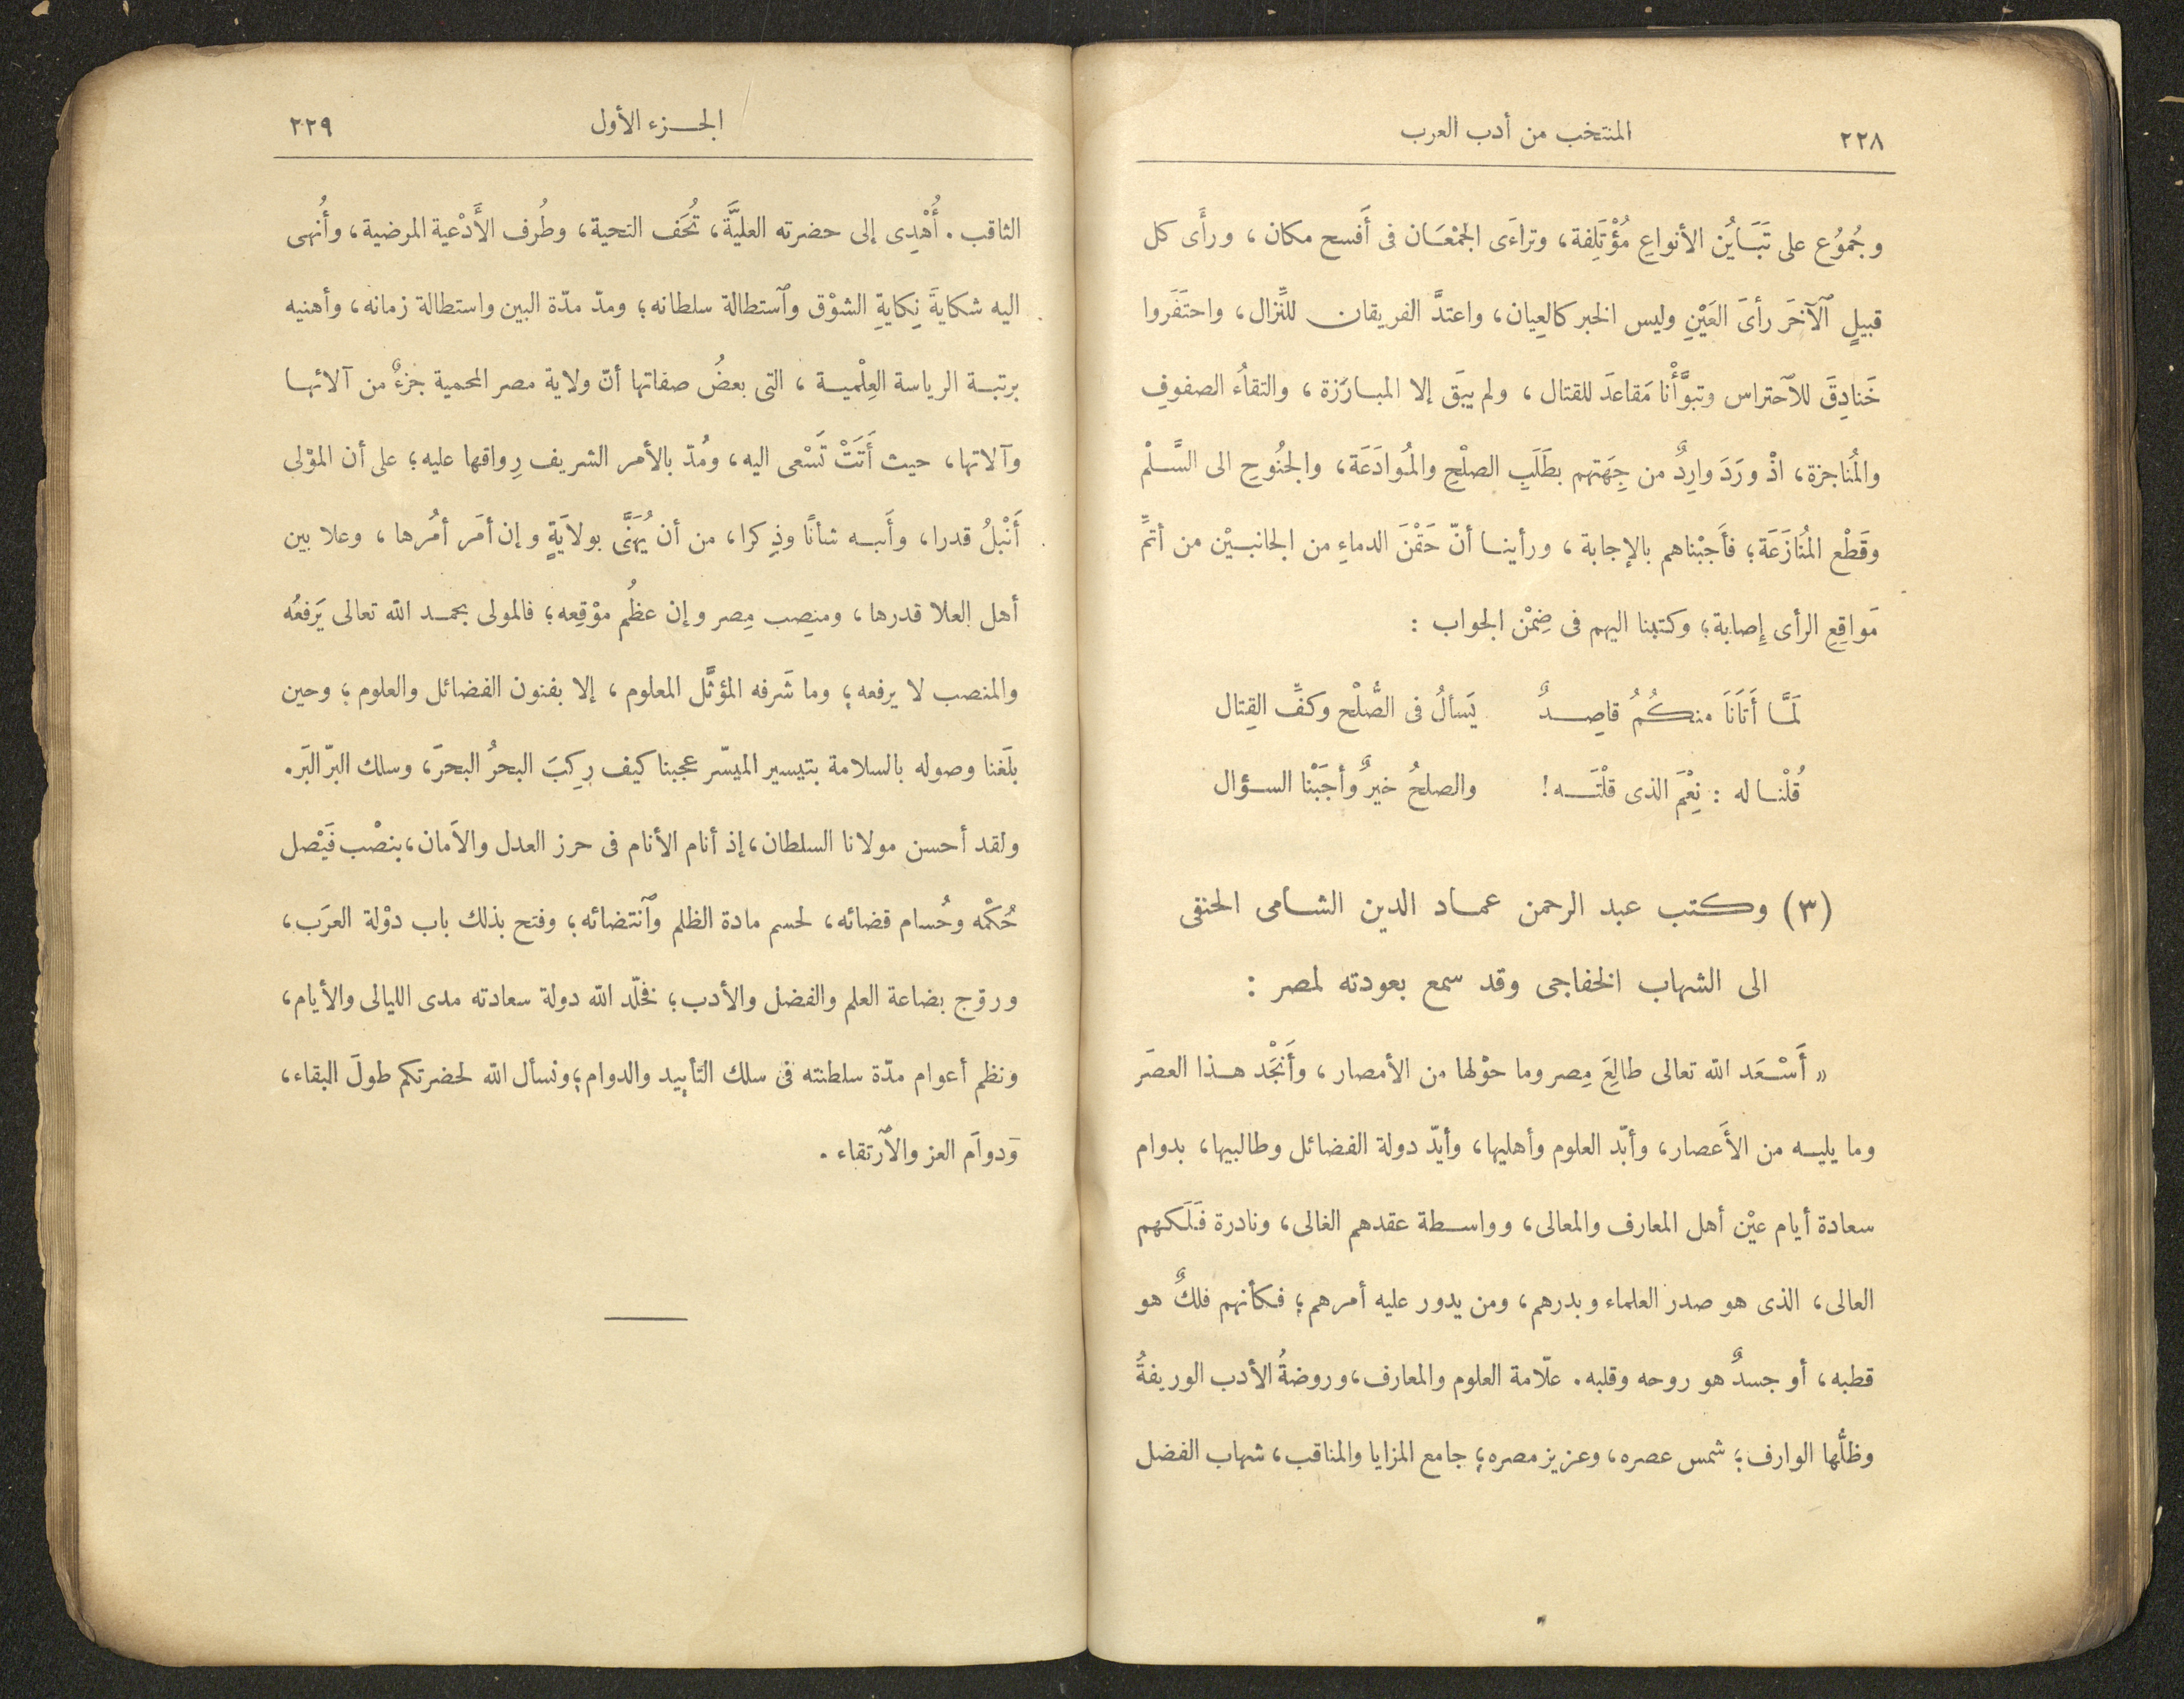 ٢٢٨
المنتخب من أدب العرب
وجُموُع على تَبَايُن الأنواعِ مُؤْتَلِفة، وتراءَى الجمْعَان فى أَفسح مكان، ورأَى كل
قبيلٍ ٱلآخَر رأىَ العَيْنِ وليس الخبر كالعِيان، واعتدَّ الفريقان للنِّزال، واحتَفَروا
خَنادِقَ للاَحتراس وتبوَّأْنا مَقاعدَ للقتال، ولم يبَق إلا المبارَزة، والتقاُء الصفوفِ
والمُناجزة، اذْ ورَدَ وارِدٌ من جِهَتهم بطَلَبِ الصلْح والمُوادَعَة، والجنُوح الى السَّلْم
وقَطْع المُنَازَعَة؛ فأَجبْناهم بالإجابة، ورأينا أنّ حَقْنَ الدماءِ من الجانبيْن من أتمِّ
مَواقِعِ الرأى إِصابة؛ وكتبنا اليهم فى ضِمْن الجواب :
لَمَّا أَتَانَا منكُمُ قاصِدٌ يَسألُ فى الصُّلْح وكفِّ القِتال
قُلْنا له : نِعْمَ الذى قلْتَه! والصلحُ خيرٌ وأجَبْنا السؤال
(٣) وكتب عبد الرحمن عماد الدين الشامى الحنفى
الى الشهاب الخفاجى وقد سمع بعودته لمصر :
« أَسْعَد الله تعالى طالِعَ مِصر وما حوْلها من الأمصار، وأَنجَْد هذا العصَر
وما يليه من الأَعصار، وأبّد العلوم وأهليها، وأيدّ دولة الفضائل وطالبيها، بدوام
سعادة أيام عيْن أهل المعارف والمعالى، وواسطة عقدهم الغالى، ونادرة فَلَكهم
العالى، الذى هو صدر العلماء وبدرهم، ومن يدور عليه أمرهم؛ فكأنهم فلكٌ هو
قطبه، أو جسدٌ هو روحه وقلبه. علّامة العلوم والمعارف، وروضةُ الأدب الوريفةُ
وظلُّها الوارف؛ شمس عصره، وعزيز مصره؛ جامع المزايا والمناقب، شهاب الفضل
الجزء الأول
٢٢٩
الثاقب. أُهْدِى إلى حضرته العليَّة، تُحَف التحية، وطُرف الأَدْعية المرضية، وأُنهى
اليه شكايةَ نِكايةِ الشوْق وٱستطالة سلطانه؛ ومدّ مدّة البين واستطالة زمانه، وأهنيه
برتبة الرياسة العِلْمية، التى بعضُ صفاتها أنّ ولاية مصر المحمية جزءٌ من آلائها
وآلاتها، حيث أَتَتْ تَسْعى اليه، ومُدّ بالأمر الشريف رِواقها عليه؛ على أن الموْلى
أَنْبلُ قدرا، وأَنبه شأنًا وذِكرا، من أن يُهَنَّى بولاَيَةٍ وإن أمَر أمُرها، وعلا بين
أهل العلا قدرها، ومنصِب مِصر وإن عظُم موْقِعه؛ فالمولى بحمد الله تعالى يَرفعُه
والمنصب لا يرفعه؛ وما شَرفه المؤثَّل المعلوم، إلا بفنون الفضائل والعلوم؛ وحين
بلَغنا وصوله بالسلامة بتيسير الميسّر عجبنا كيف رِكِبَ البحرُ البحرَ، وسلك البرّ البَر.
ولقد أحسن مولانا السلطان، إذ أنام الأنام فى حرز العدل والاَمان، بنصْب فَيْصل
حُكْمه وحُسام قضائه، لحسم مادة الظلم وٱنتضائه؛ وفتح بذلك باب دوْلة العرَب،
وروّج بضاعة العلم والفضل والأدب؛ فخلّد الله دولة سعادته مدى الليالى والأيام،
ونظم أعوام مدّة سلطنته فى سلك التأبيد والدوام؛ ونسأل الله لحضرتكم طولَ البقاء،
وَدوامَ العز والاَرتقاء.